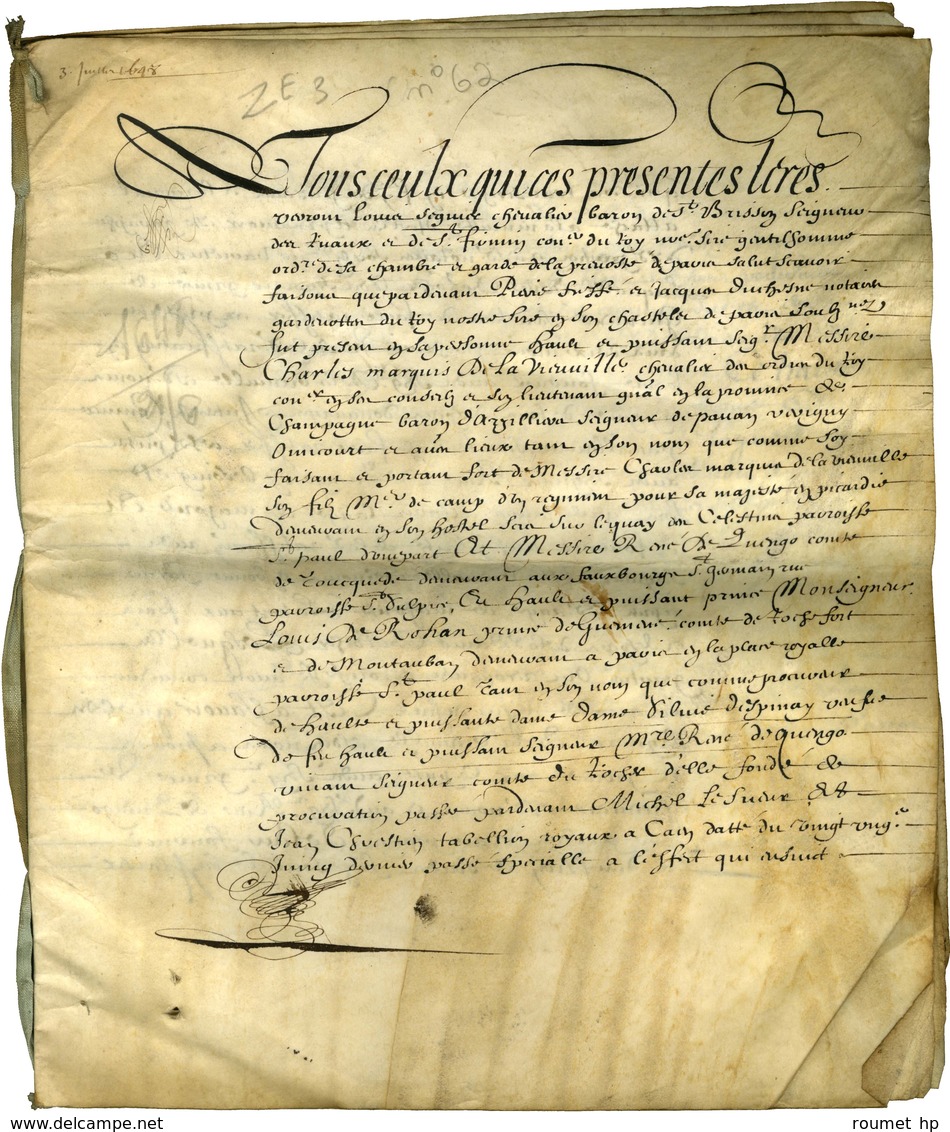 3. Juillet 1648
ZE 3 n° 62
A Tous ceulx qui ces presentes lres.
verront Louis Seguier chevalier baron de St Brisson Seigneur
des Ruaux et de St firmin conser du Roy nre sire gentilhomme
ordre de sa chambre et garde de la prevosté de paris salut scavoir
faisons que pardevant Pierre fieffé et Jacques Duchesne notaires
gardenottes du Roy nostre sire en son chastelet de paris soubz nez
fut present en sa personne hault et puissant Seigr. Messire
Charles marquis De la Vieuville chevalier des ordres du Roy
conser en ses conseils et son lieutenant gnal en la province de
Champagne baron d'Arzilliers seigneur de pavan
et aues lieux tant en son nom que comme soy
faisant et portant fort de Messire Charles marquis de la vieuville
son filz Mre de camp d'un regiment pour sa majesté en picardie
demeurant en son hostel scis sur le quay des Celestins parroisse
St paul d'une part Et Messire René de Quengo comte
de Toucquede demeurant aux fauxbourgs St germain rue
parroisse St Sulpice, Et hault et puissant prince Monseigneur
Louis de Rohan prince de Guemené, comte de Rochefort
et de Montauban demeurant a paris en la place royalle
parroisse St paul tant en son nom que comme procureur
de haulte et puissante dame dame Silvie despinay veufve
De feu hault et puissant seigneur Mre René de quengo
vivant seigneur comte du Rocher d'elle fondé de
procuration passée pardevant Michel Le Sueur et
Jean Chrestien tabellion royaux a Caen datté du vingt ung.e
Juing dernier passé specialle a l'effect qui ensuict
roumet hp